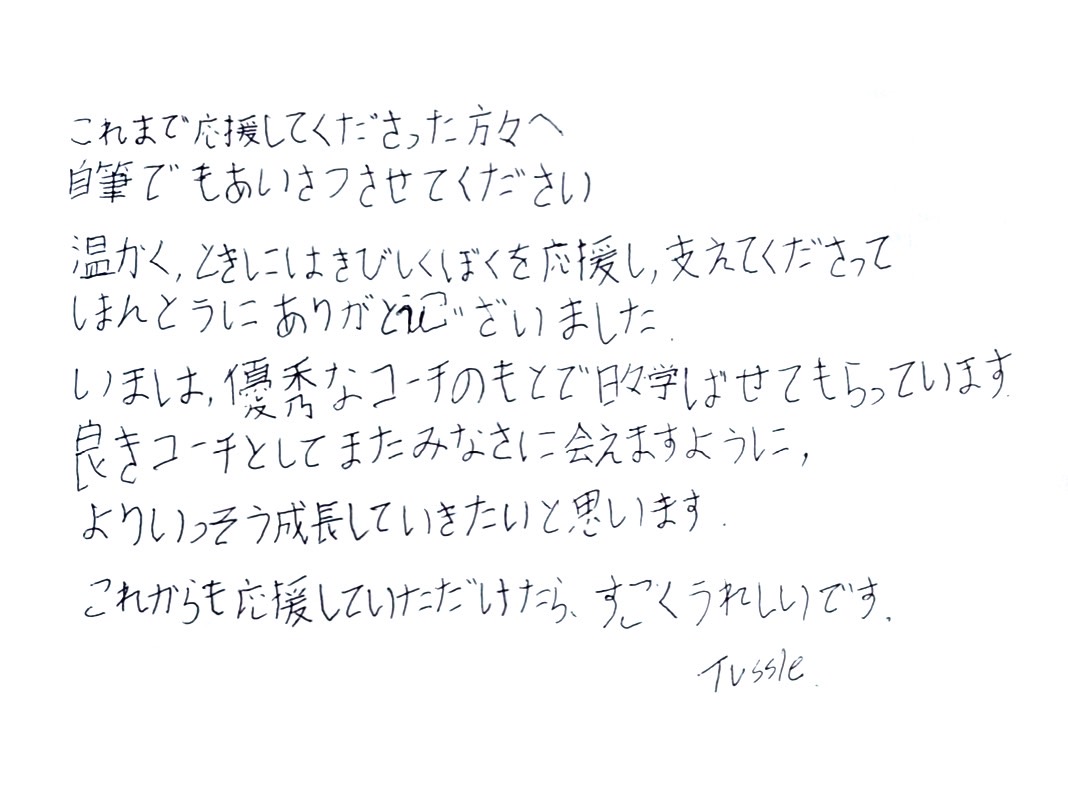 これまで応援してくださった方々へ
自筆でもあいさつさせてください
温かく,ときにはきびしくぼくを応援し,支えてくださって
ほんとうにありがとうございました.
いまは,優秀なコーチのもとで日々学ばせてもらっています.
良きコーチとしてまたみなさに会えますように,
よりいっそう成長していきたいと思います.
これからも応援していただけたら、すごくうれしいです.
Tussle.